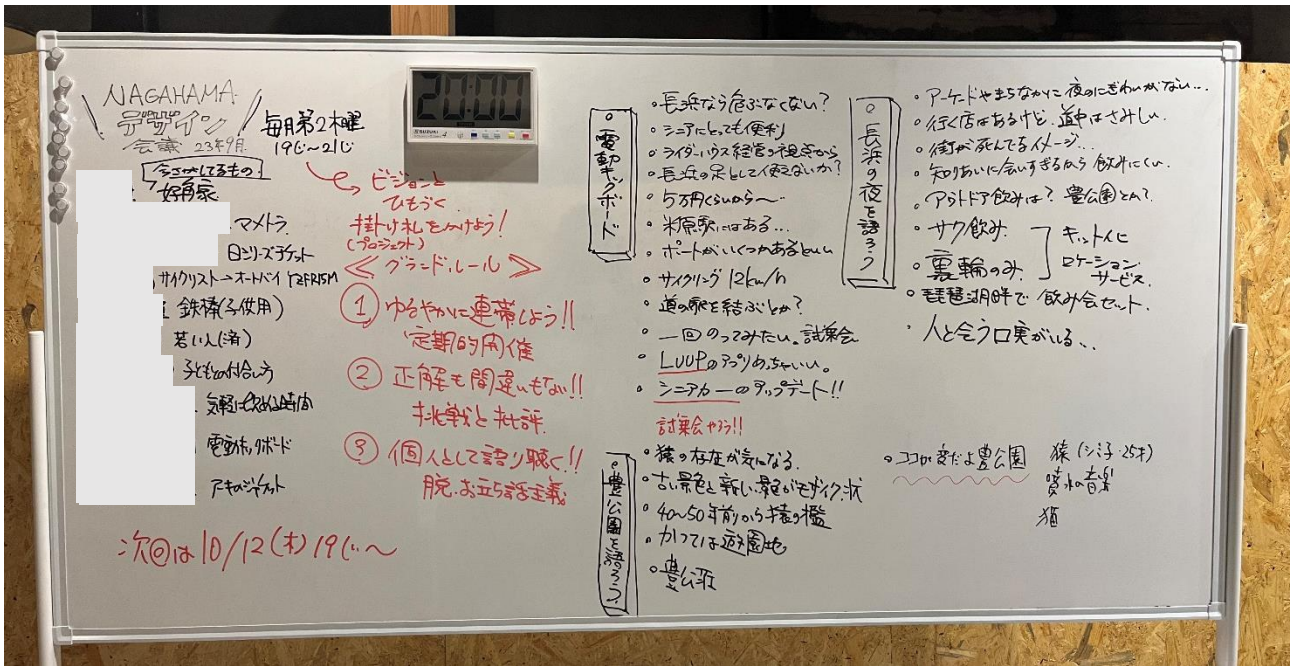 NAGAHAMA
デザイン
会議 23年9月
毎月第2木曜
19じ〜21じ
今さがしてるもの
好角家
マメトラ
日シリーズチケット
サイクリスト→オートバイ
鉄棒(子供用)
若い人(済)
子どもとの付合い方
気軽に飲める時間
電動キックボード
アキのジャケット
次回は10/12(木)19じ〜
ビジョンと
ひもづく
掛け札をかけよう!
(プロジェクト)
≪グランドルール≫
① ゆるやかに連帯しよう!!
定期的開催
② 正解も間違いもない!!
挑戦と批評
③ 個人として語り聴く!!
脱・お立ち話主義
20:00
SUZUKI
・電動キックボード
・長浜なら危ぶなくない?
・シニアにとっても便利
・ライダーハウス経営の視点から
・長浜の足として使えないか?
・5万円くらいから〜…
・米原駅にはある…
・ポートがいくつかあるといい
・サイクリング 12km/h
・道の駅を結ぶとか?
・一回のってみたい。試乗会
・LUUPのアプリめっちゃいい。
・シニアカーのアップデート!!
試乗会やろう!!
・豊公園を語ろう
・猿の存在が気になる。
・古い景色と新しい景色がモザイク状
・40〜50年前から猿の檻
・かつては遊園地
・豊公荘
・長浜の夜を語ろう
・アーケードやまちなかに夜のにぎわいがない…
・行く店はあるけど、道中はさみしい。
・街が死んでるイメージ…
・知りあいに会いすぎるから飲みにくい。
・アウトドア飲みは? 豊公園とか?
・サク飲み
・裏輪のみ
キット化に
ロケーション
サービス
・琵琶湖畔で飲み会セット.
・人と会う口実がいる…
・ココが変だよ豊公園
猿(シ子・25才)
噴水の音楽
猫